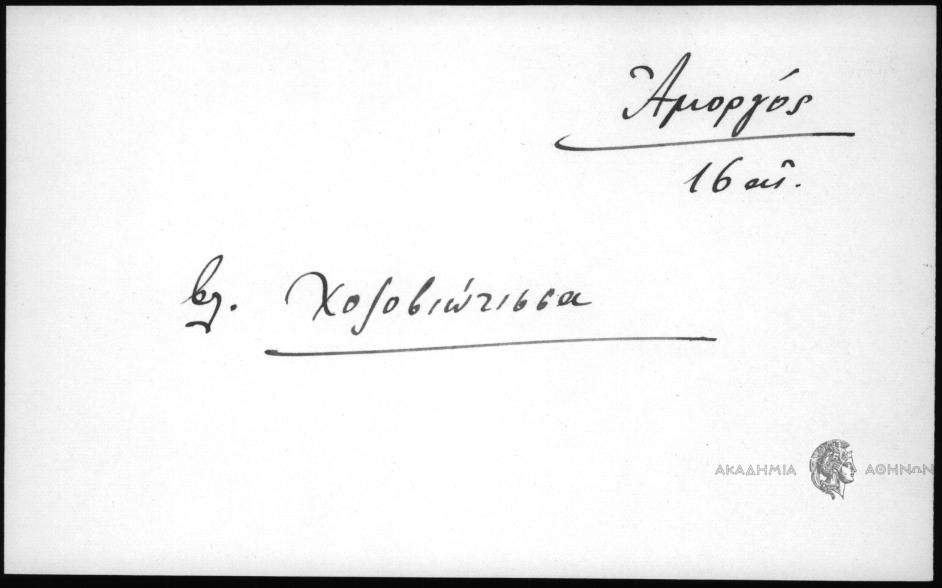 Ἀμοργός
16 αἰ.
βλ. Χοζοβιώτισσα
ΑΚΑΔΗΜΙΑ ΑΘΗΝΩΝ